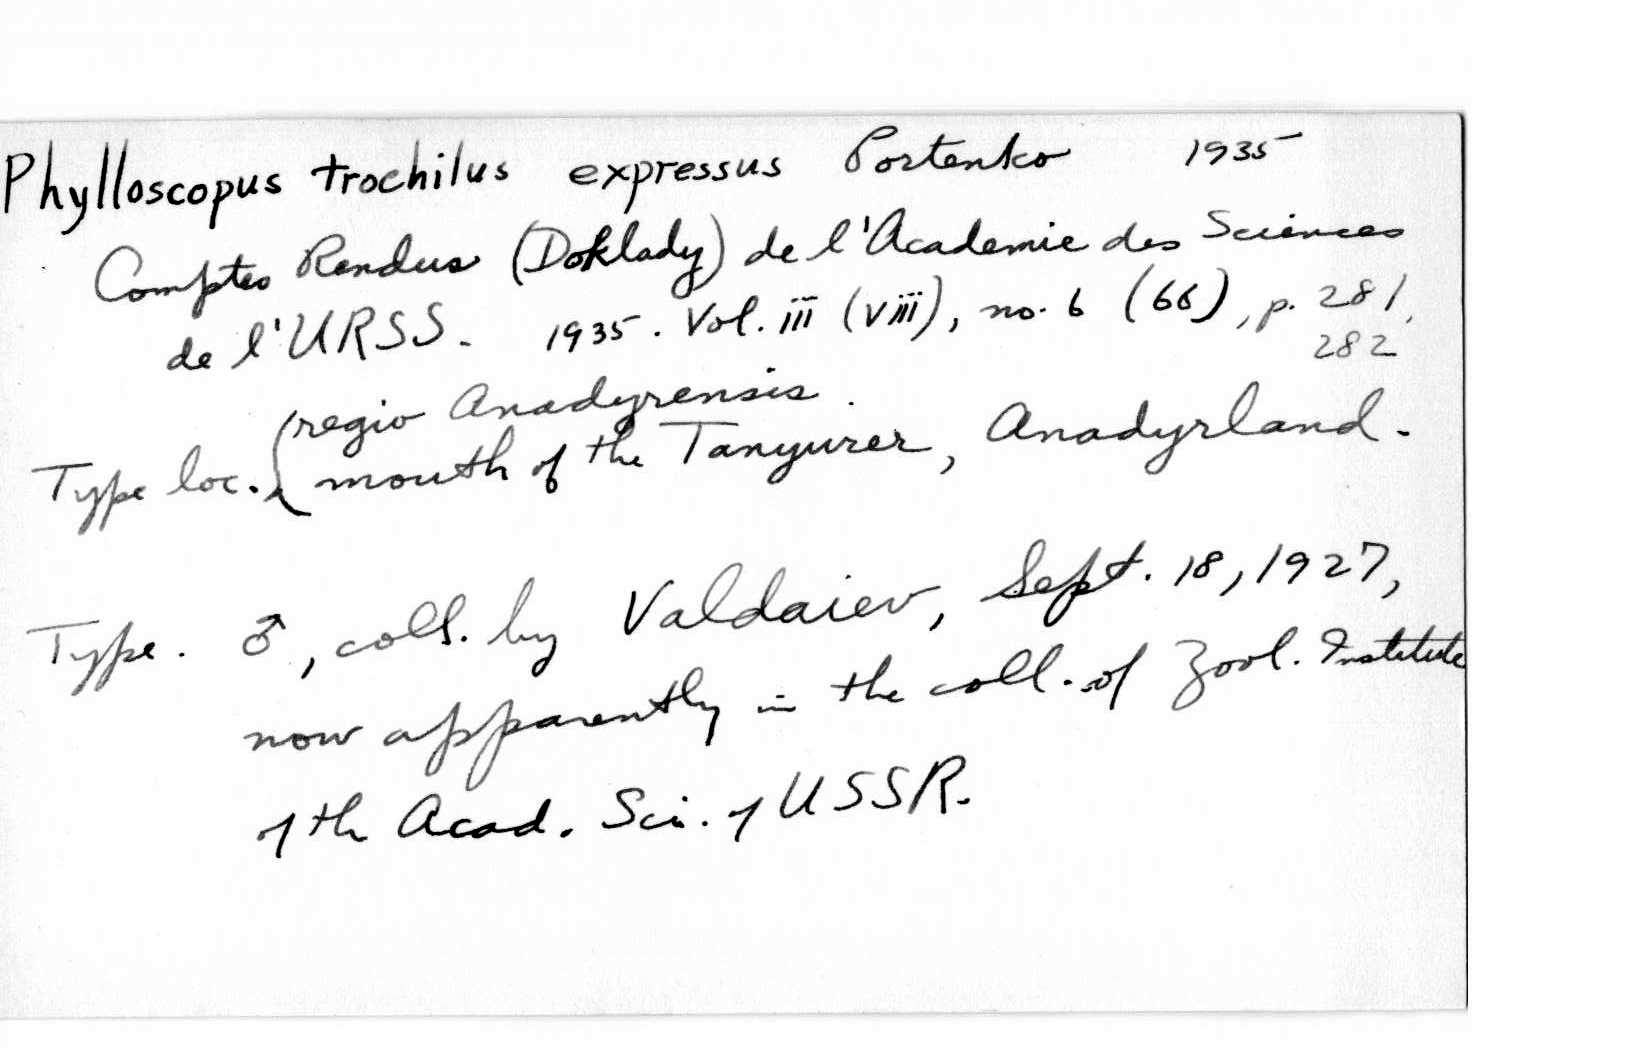 Phylloscopus trochilus expressus Portenko 1935
Comptes Rendus (Doklady) de l'Academie des Sciences
de l'URSS. 1935. Vol. iii (viii), no. 6 (66), p. 281,
282
regio Anadyrensis.
Type loc. mouth of the Tanyurer, Anadyrland.
Type. ♂, coll. by Valdaiev, Sept. 18, 1927,
now apparently in the coll. of Zool. Institute
of th Acad. Sci. of USSR.